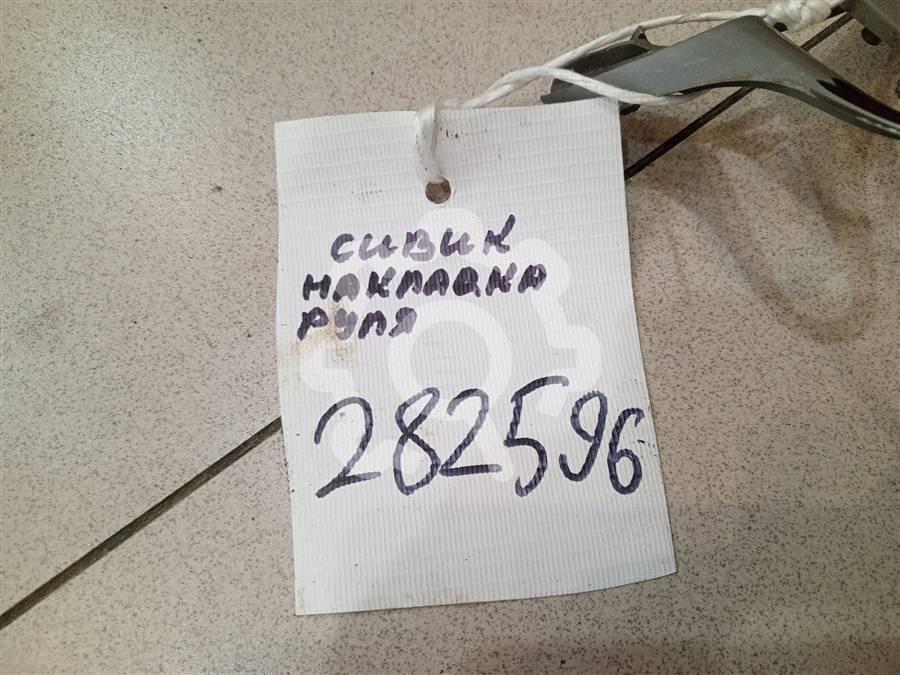 СИВИК
НАКЛАДКА
РУЛЯ
282596